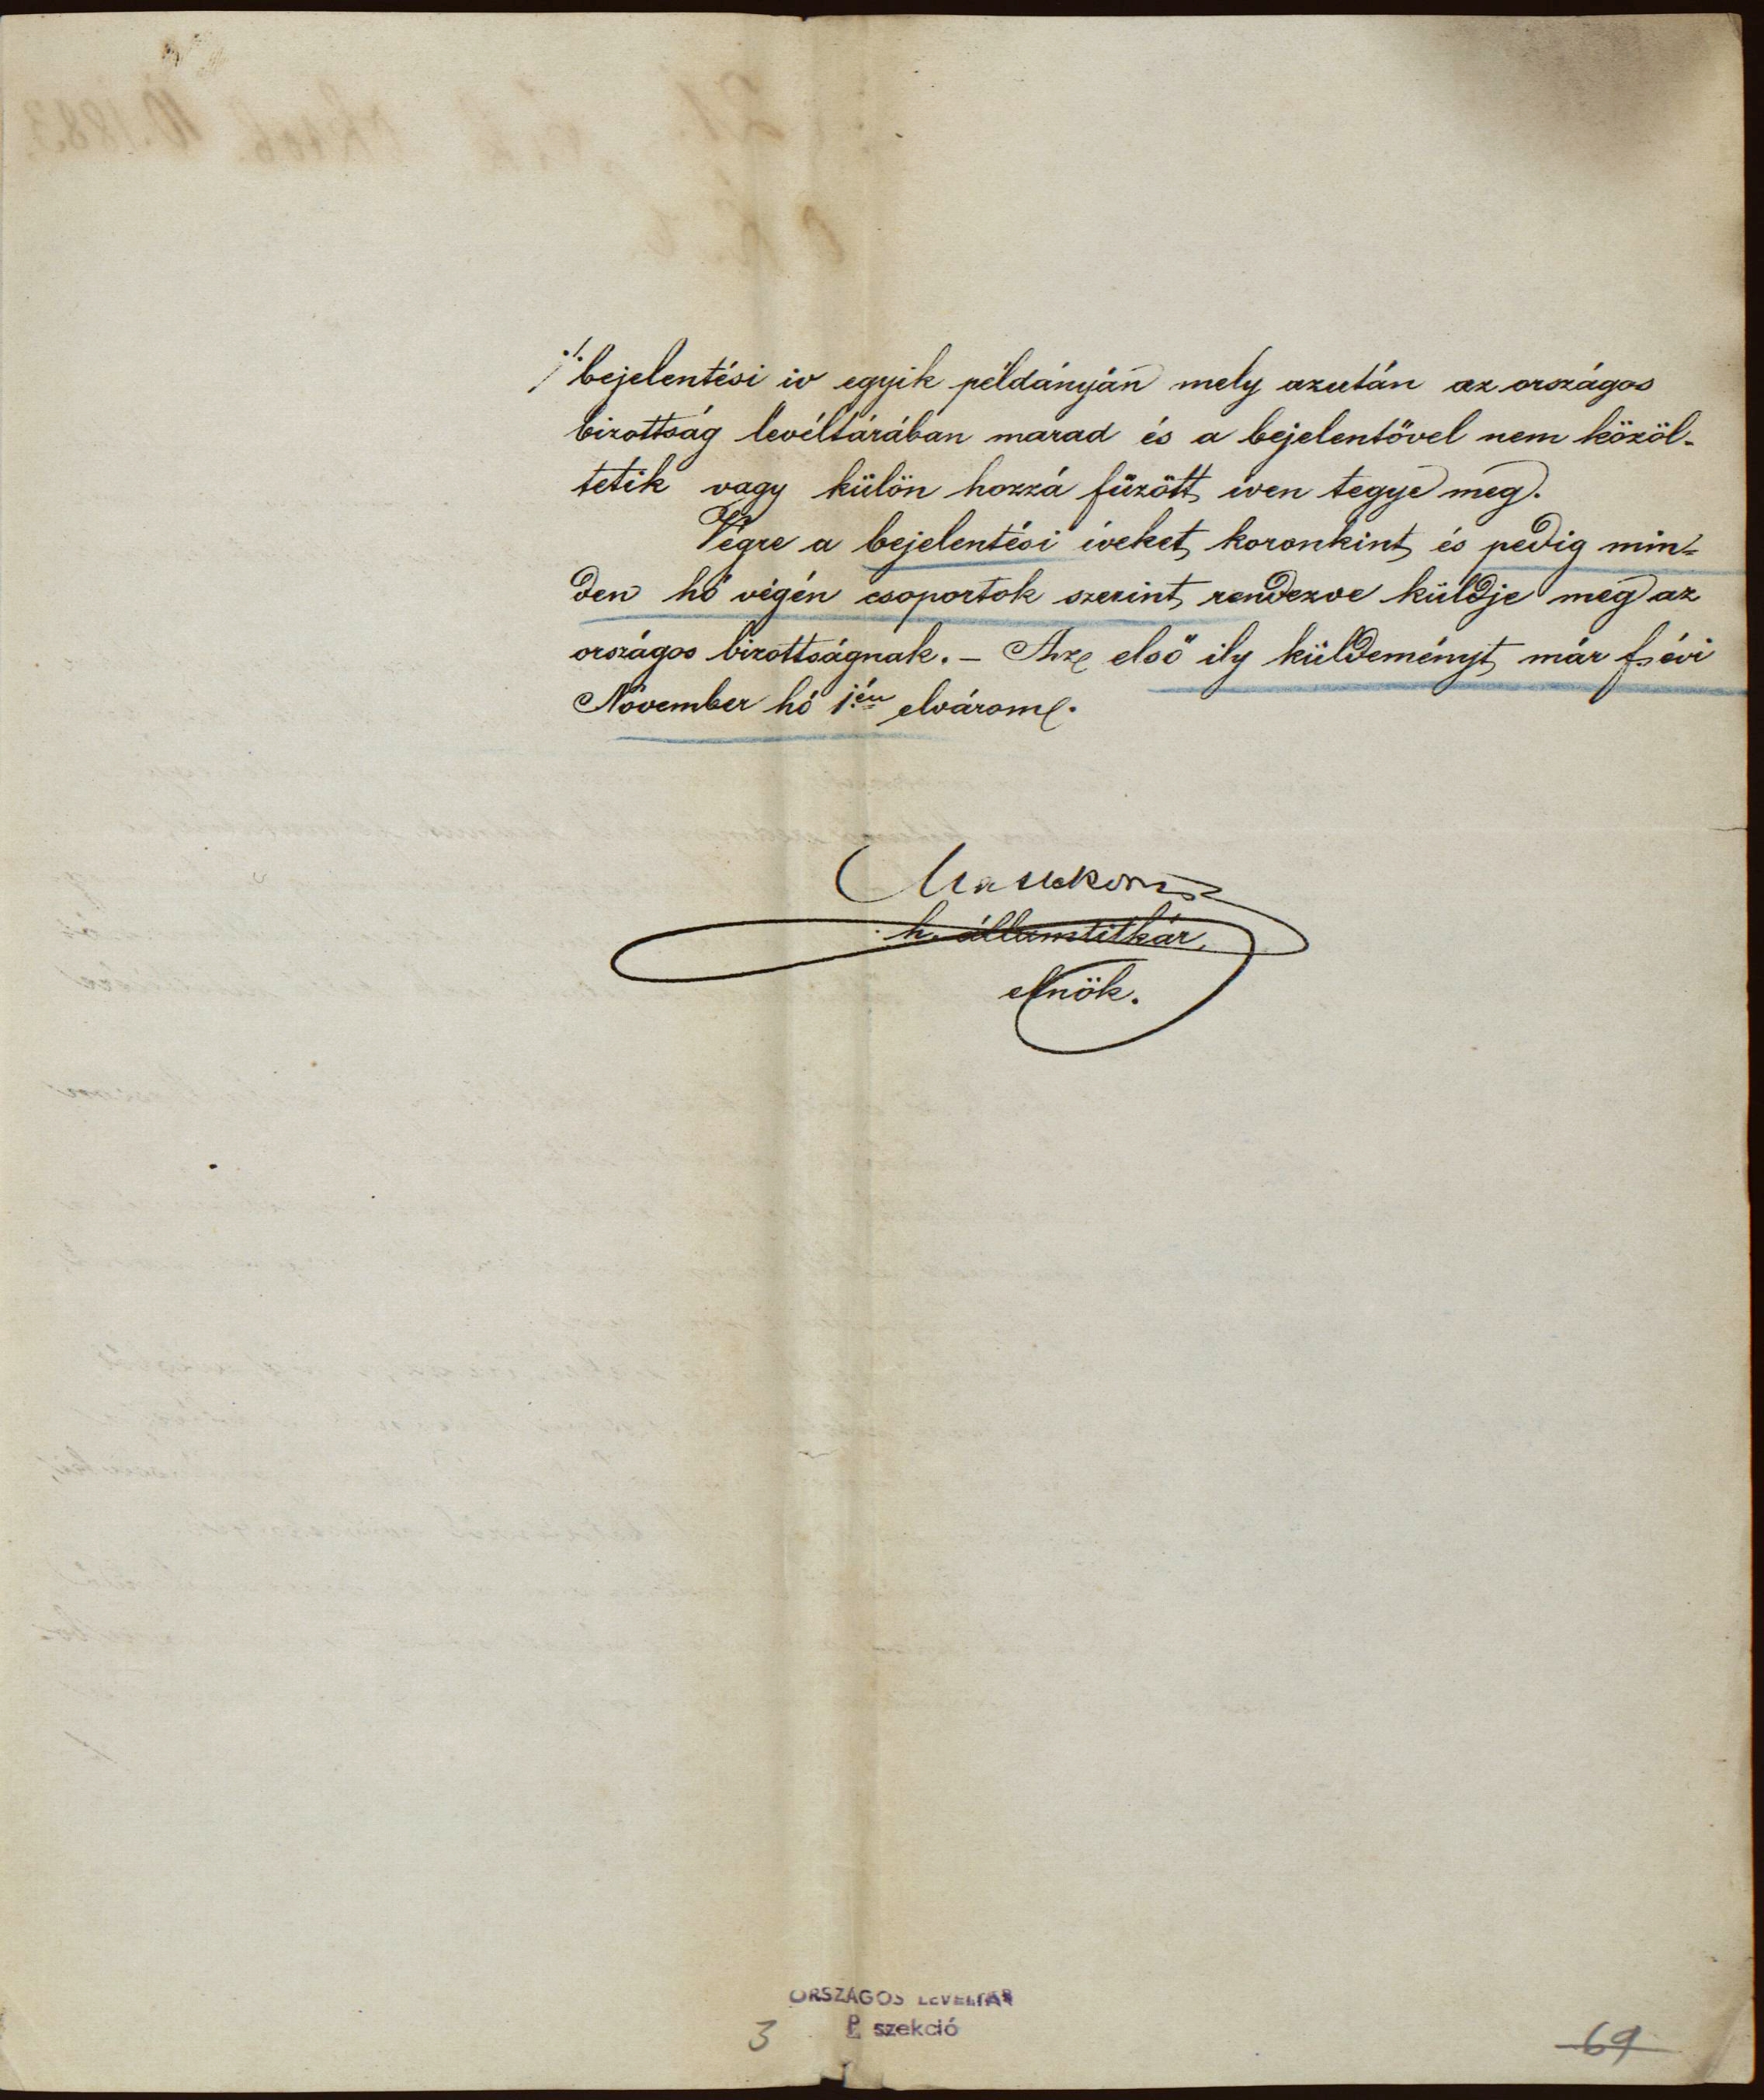 ·/. bejelentési iv egyik példányán mely azután az országos
bizottság levéltárában marad és a bejelentővel nem közöl-
tetik vagy külön hozzá fűzött iven tegye meg.
Végre a bejelentési íveket koronkint és pedig min-
den hó végén csoportok szerint rendezve küldje meg az
országos bizottságnak. – Az első ily küldeményt már f. évi
November hó 1jén elvárom.
Matlekovits
h. államtitkár,
elnök.
ORSZÁGOS LEVÉLTÁR
P szekció
3
69